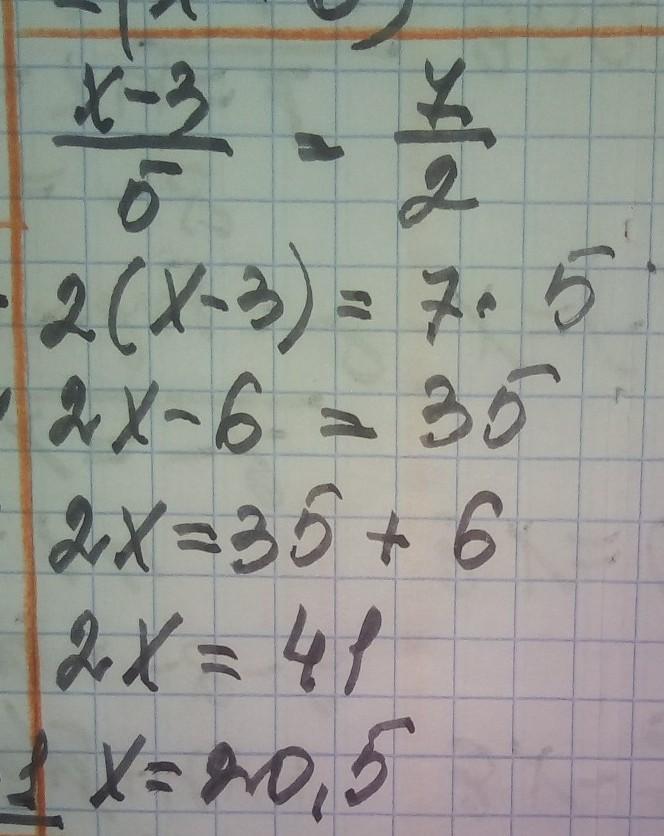 x-3/5 = 7/2
2(x-3) = 7· 5
2x-6 = 35
2x=35+6
2x= 41
1 x=20,5